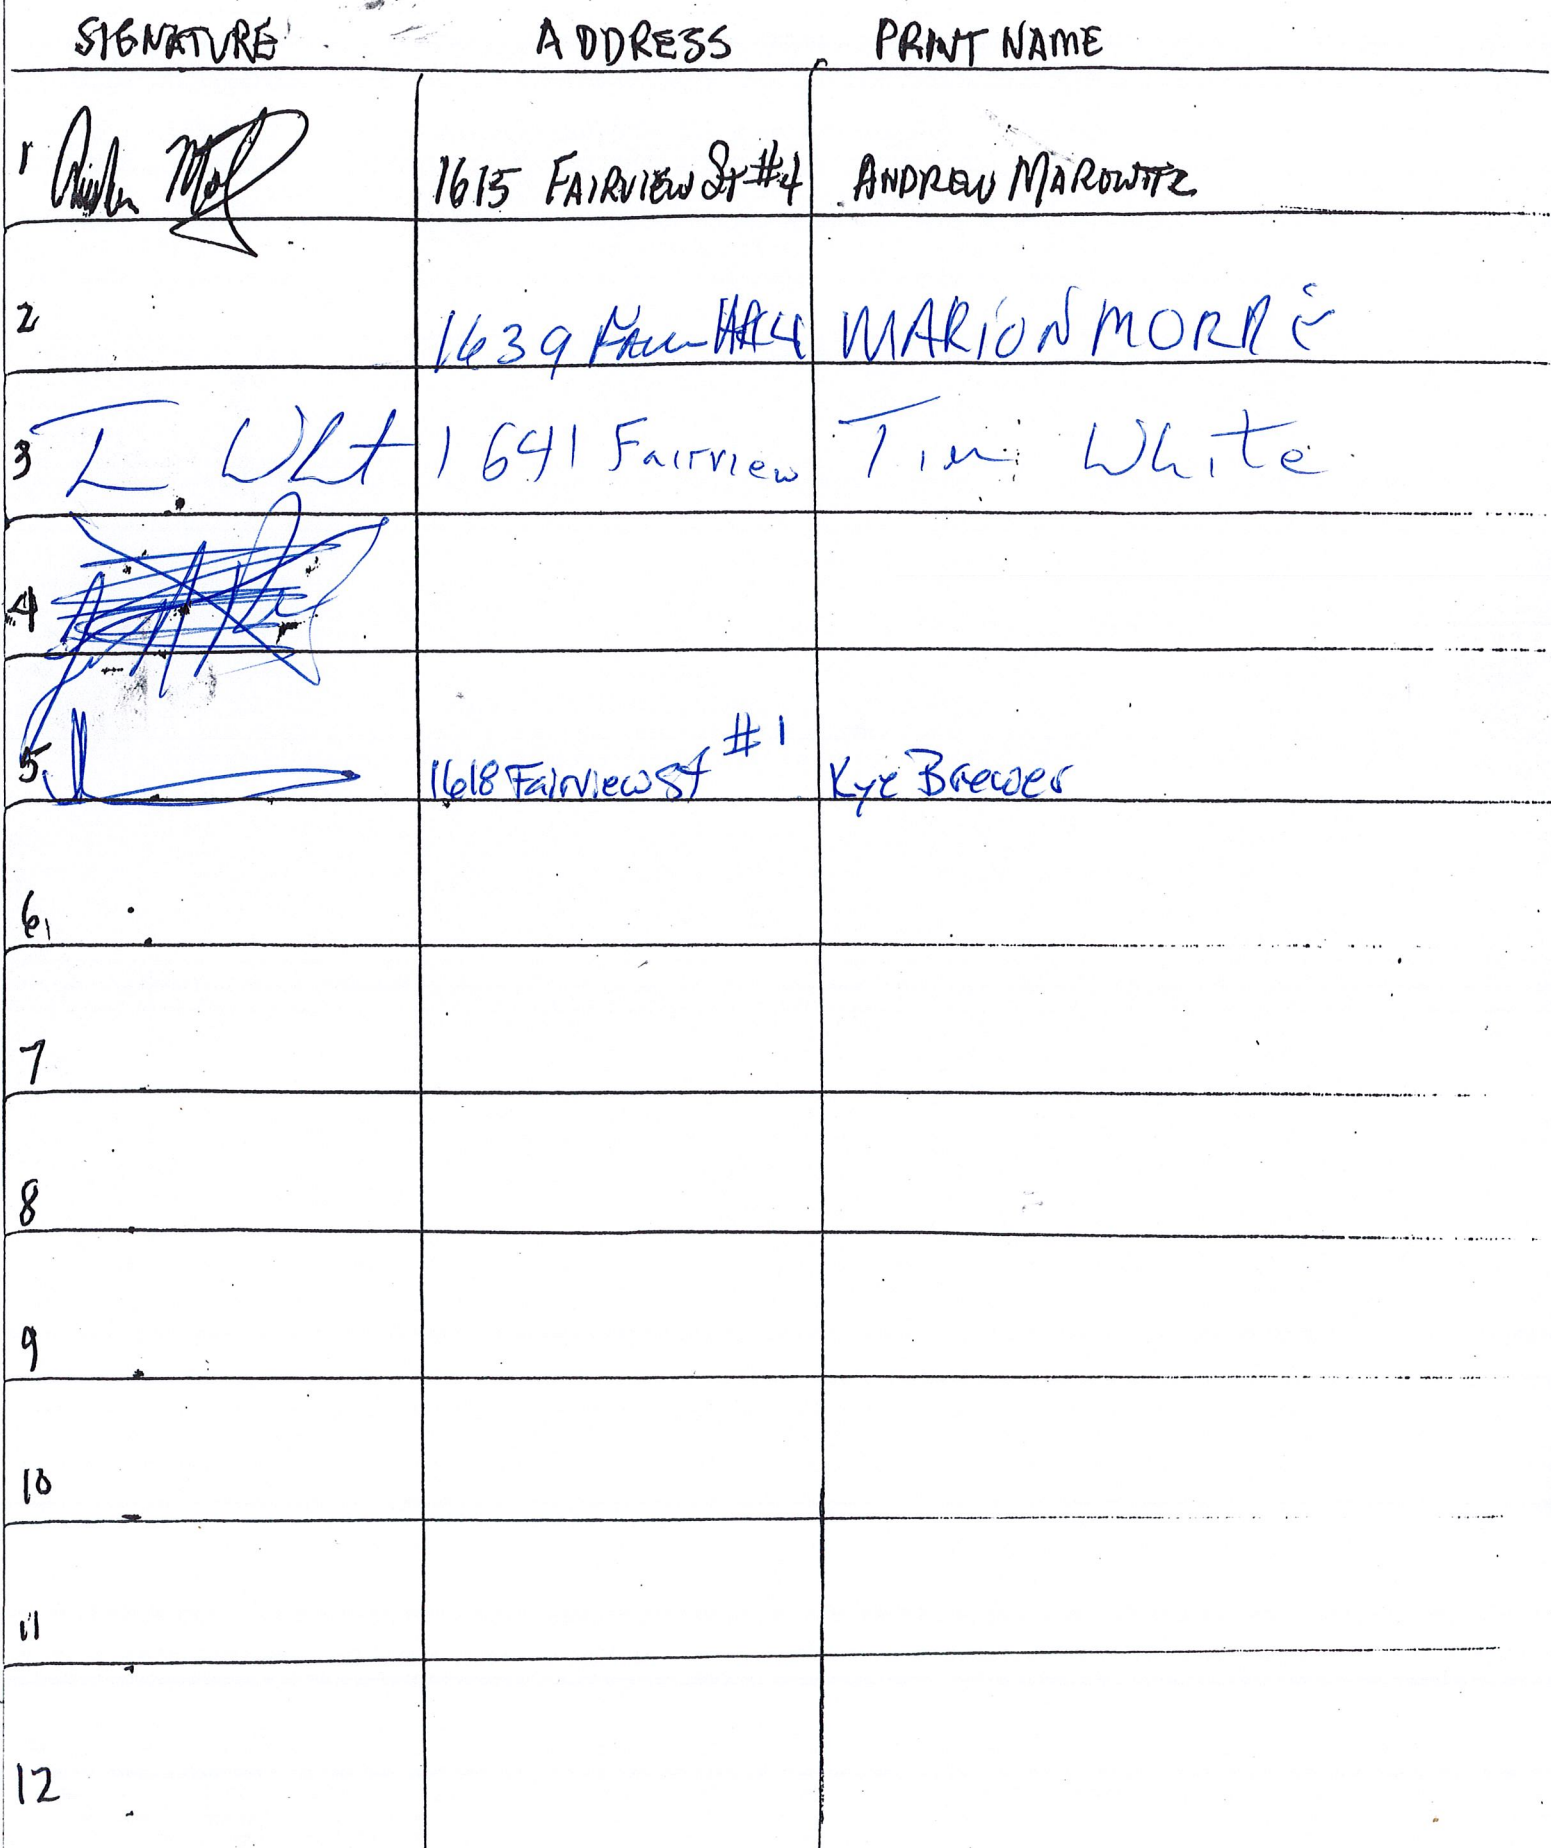 SIGNATURE ADDRESS PRINT NAME
1 1615 FAIRVIEW St #4 ANDREW MAROWITZ
2 1639 #4 MARION MORRÉ
3 T. White 1641 Fairview Tim White
4
5. 1618 Fairview St #1 Kye Brewer
6.
7
8
9
10
11
12